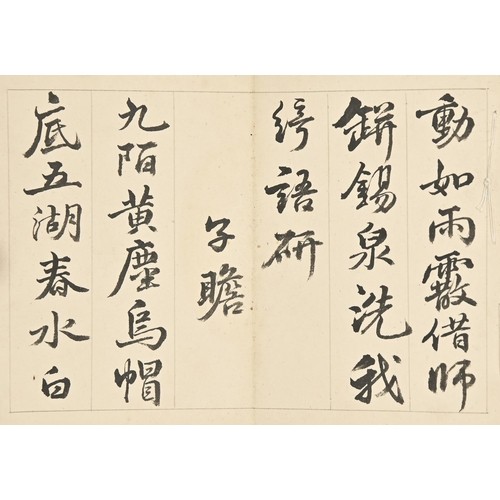 動如雨霰借師
缾錫泉洗我
綺語研
子瞻
九陌黃塵烏帽
底五湖春水白